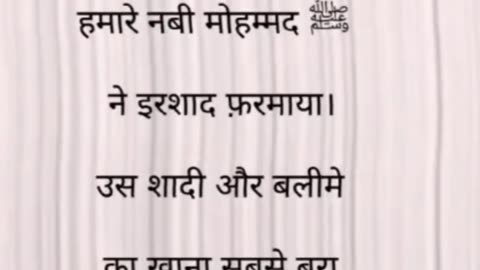 हमारे नबी मोहम्मद ﷺ
ने इरशाद फ़रमाया।
उस शादी और बलीमे
का खाना सबसे बुरा